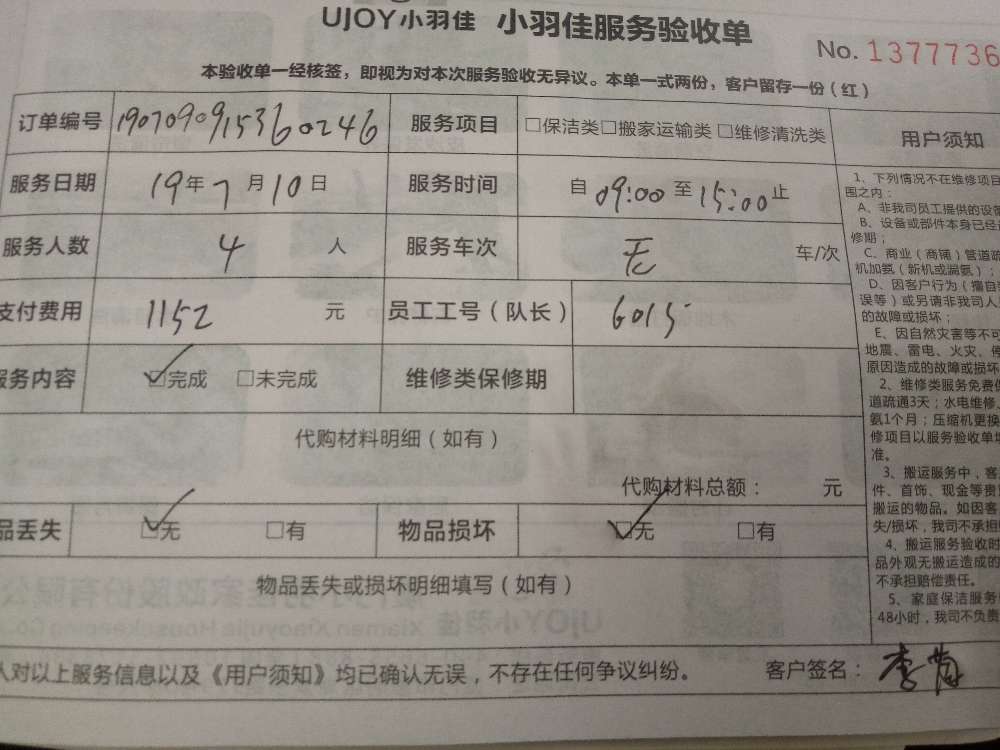 UJOY小羽佳 小羽佳服务验收单
No. 1377736
本验收单一经核签，即视为对本次服务验收无异议。本单一式两份，客户留存一份（红）
订单编号 1907090915360246 服务项目 □保洁类□搬家运输类 □维修清洗类
服务日期 19年7月10日 服务时间 自09:00至15:00止
服务人数 4 人 服务车次 无 车/次
支付费用 1152 元 员工工号（队长） 6015
服务内容 ☑完成 □未完成 维修类保修期
代购材料明细（如有）
代购材料总额： 元
品丢失 ☑无 □有 物品损坏 ☑无 □有
物品丢失或损坏明细填写（如有）
人对以上服务信息以及《用户须知》均已确认无误，不存在任何争议纠纷。 客户签名：李
用户须知
1、下列情况不在维修项目
围之内：
A、非我司员工提供的设备
B、设备或部件本身已经
修期；
C、商业（商铺）管道疏
机加氨（新机或漏氨）；
D、因客户行为（擅自
误等）或另请非我司人
的故障或损坏；
E、因自然灾害等不可
地震、雷电、火灾、
原因造成的故障或损坏
2、维修类服务免费保
道疏通3天；水电维修
氨1个月；压缩机更换
修项目以服务验收单
准。
3、搬运服务中，客
件、首饰、现金等贵
搬运的物品。如因客
失/损坏，我司不承担
4、搬运服务验收时
品外观无搬运造成的
不承担赔偿责任。
5、家庭保洁服务
48小时，我司不负责